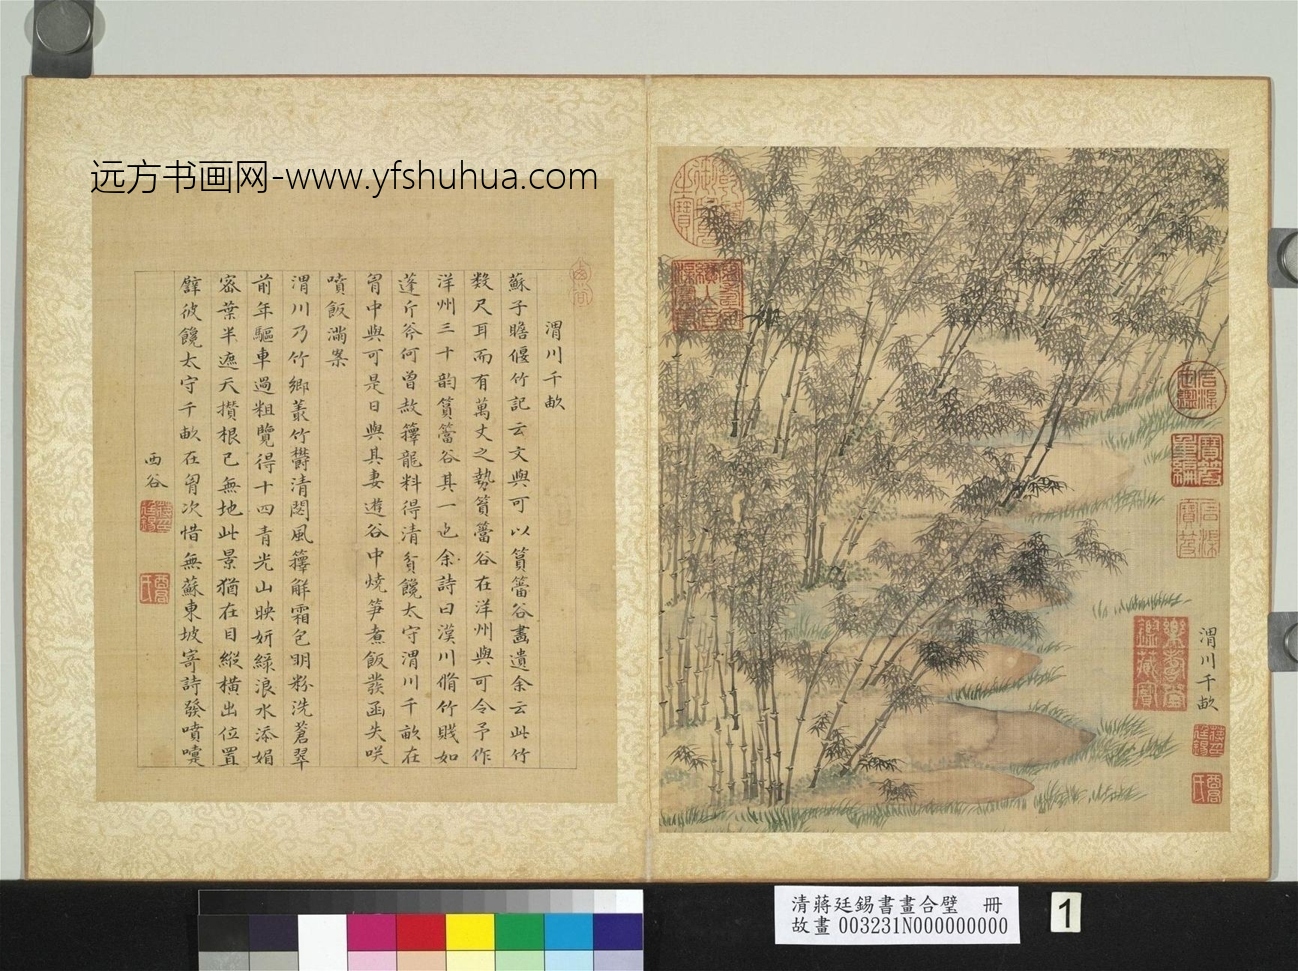 远方书画网-www.yfshuhua.com
渭川千畝
蘇子瞻偃竹記云文與可以篔簹谷畫遺余云此竹
数尺耳而有萬丈之勢篔簹谷在洋州與可令予作
洋州三十韵篔簹谷其一也余詩曰漢川脩竹賤如
蓬斤斧何曾赦籜龍料得清貧饞太守渭川千畝在
胷中與可是日與其妻遊谷中燒筍煮飯發函失咲
噴飯滿案
渭川乃竹鄉叢竹鬱清閟風籜解霜包明粉洗蒼翠
前年驅車過粗覽得十四青光山映妍綠浪水添媚
密葉半遮天攢根已無地此景猶在目縱橫出位置
辥彼饞太守千畝在胷次惜無蘇東坡寄詩發噴嚏
西谷
渭川千畝
清蔣廷錫書畫合璧 冊
故畫 003231N000000000
1